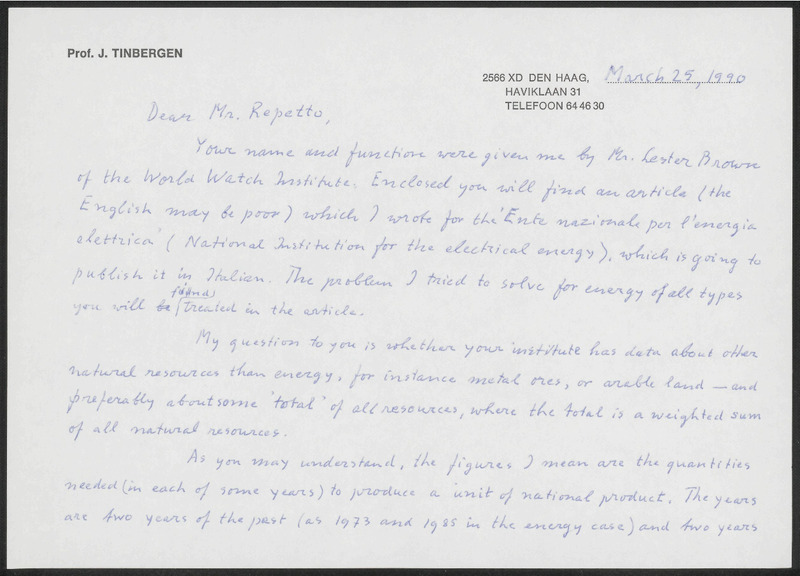 Prof. J. TINBERGEN
2566 XD DEN HAAG, March 25, 1990
HAVIKLAAN 31
TELEFOON 64 46 30
Dear Mr. Repetto,
Your name and function were given me by Mr. Lester Brown
of the World Watch Institute. Enclosed you will find an article (the
English may be poor) which I wrote for the 'Ente nazionale per l'energia
elettrica' (National Institution for the electrical energy), which is going to
publish it in Italian. The problem I tried to solve for energy of all types
you will be find treated in the article.
My question to you is whether your institute has data about other
natural resources than energy, for instance metal ores, or arable land — and
preferably about some 'total' of all resources, where the total is a weighted sum
of all natural resources.
As you may understand, the figures I mean are the quantities
needed (in each of some years) to produce a unit of national product. The years
are two years of the past (as 1973 and 1985 in the energy case) and two years